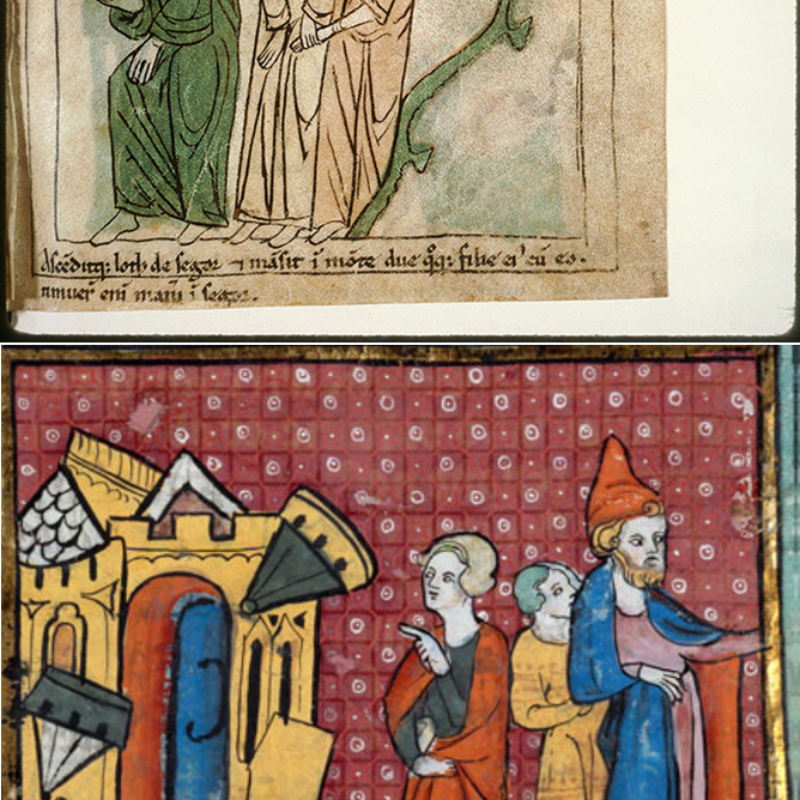 Ascēditq; loth de segor ⁊ māsit ī mōte due qͦq; filie ei' cū eo.
timuer̄ enī manē ī segor.